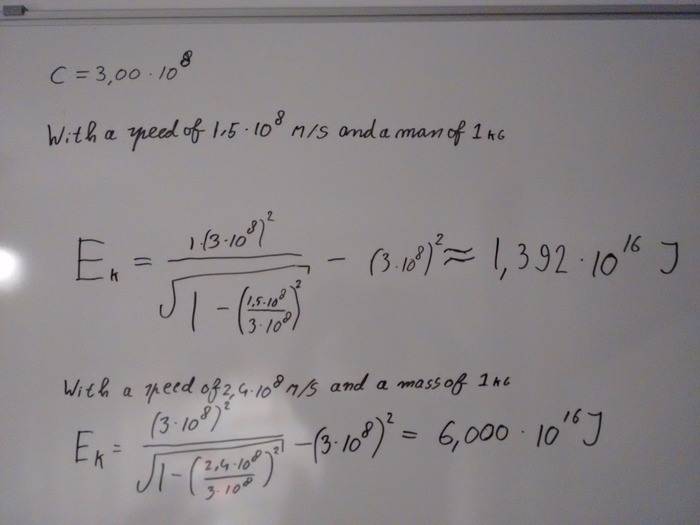 C = 3,00 · 10^8
With a speed of 1,5 · 10^8 m/s and a mass of 1 kg
E_k = 1·(3·10^8)^2 / √(1 − (1,5·10^8 / 3·10^8)^2) − (3·10^8)^2 ≈ 1,392 · 10^16 J
With a speed of 2,4·10^8 m/s and a mass of 1 kg
E_k = (3·10^8)^2 / √(1 − (2,4·10^8 / 3·10^8)^2) − (3·10^8)^2 = 6,000 · 10^16 J